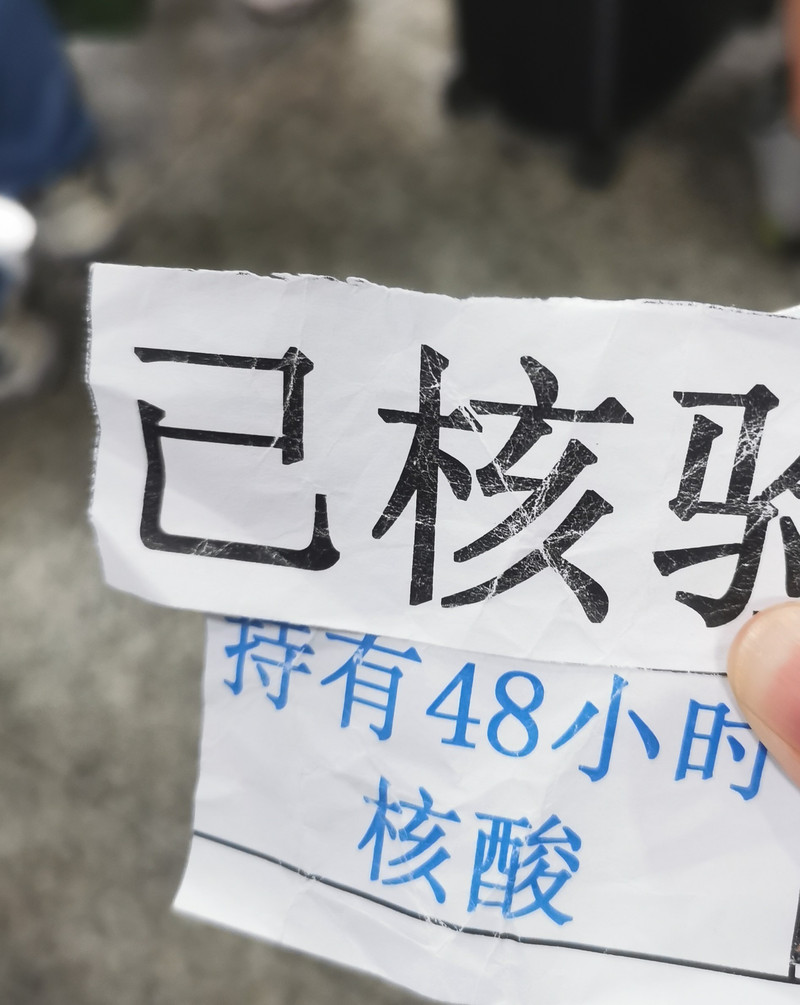 已核验
持有48小时
核酸